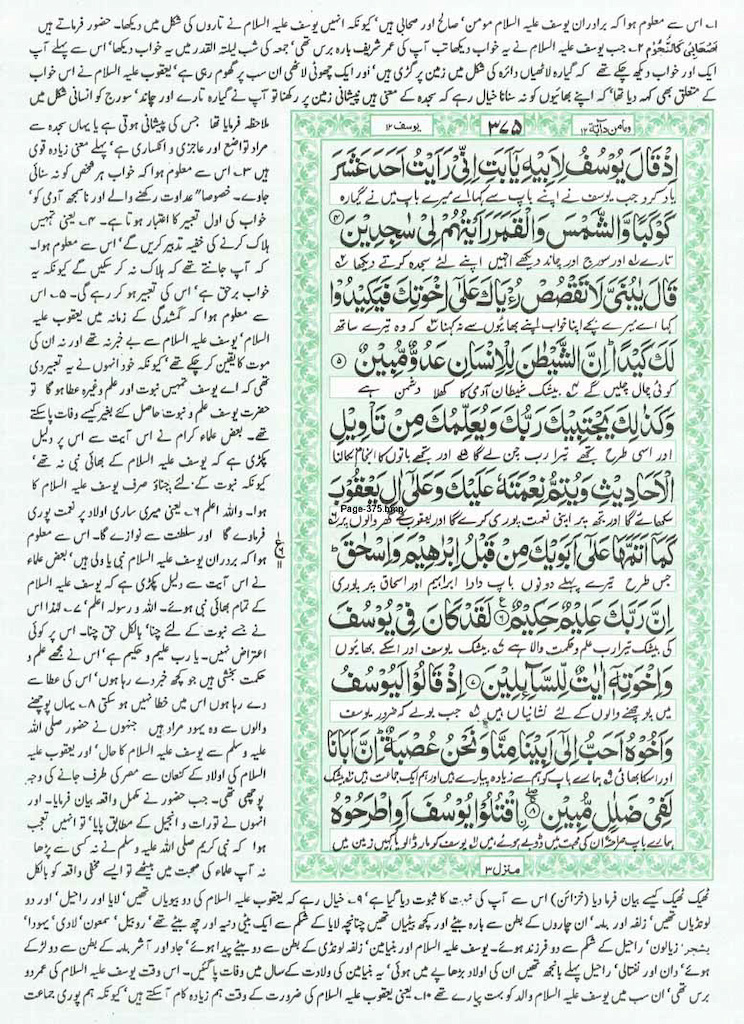 ۱۔ اس سے معلوم ہوا کہ برادران یوسف علیہ السلام مومن' صالح اور صحابی ہیں' کیونکہ انہیں یوسف علیہ السلام نے تاروں کی شکل میں دیکھا۔ حضور فرماتے ہیں
۲۔ جب یوسف علیہ السلام نے یہ خواب دیکھا تب آپ کی عمر شریف بارہ برس تھی' جمعہ کی شب لیلتہ القدر میں یہ خواب دیکھا' اس سے پہلے آپ
ایک اور خواب دیکھ چکے تھے کہ گیارہ لاٹھیاں دائرہ کی شکل میں زمین پر گڑی ہیں' اور ایک چھوٹی لاٹھی ان سب پر گھوم رہی ہے' یعقوب علیہ السلام نے اس خواب
کے متعلق بھی کہہ دیا تھا' کہ اپنے بھائیوں کو نہ سنانا خیال رہے کہ سجدہ کے معنی ہیں پیشانی زمین پر رکھنا تو آپ نے گیارہ تارے اور چاند' سورج کو انسانی شکل میں
ومامن دآبۃ ۱۲
۳۷۵
یوسف ۱۲
اِذْ قَالَ يُوْسُفُ لِاَبِيْهِ يٰۤاَبَتِ اِنِّیْ رَاَيْتُ اَحَدَ عَشَرَ
یاد کرو جب یوسف نے اپنے باپ سے کہا اے میرے باپ میں نے گیارہ
كَوْكَبًا وَّالشَّمْسَ وَالْقَمَرَ رَاَيْتُهُمْ لِیْ سٰجِدِيْنَ ۴
تارے اور سورج اور چاند دیکھے انہیں اپنے لئے سجدہ کرتے دیکھا
قَالَ يٰبُنَیَّ لَا تَقْصُصْ رُءْيَاكَ عَلٰۤی اِخْوَتِكَ فَيَكِيْدُوْا
کہا اے میرے بچے اپنا خواب اپنے بھائیوں سے نہ کہنا کہ وہ تیرے ساتھ
لَكَ كَيْدًا اِنَّ الشَّيْطٰنَ لِلْاِنْسَانِ عَدُوٌّ مُّبِيْنٌ ۵
کوئی چال چلیں گے بیشک شیطان آدمی کا کھلا دشمن ہے
وَكَذٰلِكَ يَجْتَبِيْكَ رَبُّكَ وَيُعَلِّمُكَ مِنْ تَاْوِيْلِ
اور اسی طرح تجھے تیرا رب چن لے گا اور تجھے باتوں کا انجام نکالنا
الْاَحَادِيْثِ وَيُتِمُّ نِعْمَتَهٗ عَلَيْكَ وَعَلٰۤی اٰلِ يَعْقُوْبَ
Page-375.bmp
سکھائے گا اور تجھ پر اپنی نعمت پوری کرے گا اور یعقوب کے گھر والوں پر
كَمَاۤ اَتَمَّهَا عَلٰۤی اَبَوَيْكَ مِنْ قَبْلُ اِبْرٰهِيْمَ وَاِسْحٰقَ
جس طرح تیرے پہلے دونوں باپ دادا ابراہیم اور اسحاق پر پوری
اِنَّ رَبَّكَ عَلِيْمٌ حَكِيْمٌ ۶ لَقَدْ كَانَ فِیْ يُوْسُفَ
کی بیشک تیرا رب علم و حکمت والا ہے بیشک یوسف اور اسکے بھائیوں
وَاِخْوَتِهٖۤ اٰيٰتٌ لِّلسَّآىِٕلِيْنَ ۷ اِذْ قَالُوْا لَيُوْسُفُ
میں پوچھنے والوں کے لئے نشانیاں ہیں جب بولے کہ ضرور یوسف
وَاَخُوْهُ اَحَبُّ اِلٰۤی اَبِيْنَا مِنَّا وَنَحْنُ عُصْبَةٌ اِنَّ اَبَانَا
اور اسکا بھائی ہمارے باپ کو ہم سے زیادہ پیارے ہیں اور ہم ایک جماعت ہیں بیشک
لَفِیْ ضَلٰلٍ مُّبِيْنٍ ۸ اقْتُلُوْا يُوْسُفَ اَوِ اطْرَحُوْهُ
ہمارے باپ صراحۃً ان کی محبت میں ڈوبے ہوئے ہیں یوسف کو مار ڈالو یا کہیں زمین میں
منزل ۳
ملاحظہ فرمایا تھا جس کی پیشانی ہوتی ہے یا یہاں سجدہ سے
مراد تواضع اور عاجزی و انکساری ہے' پہلے معنی زیادہ قوی
ہیں ۳۔ اس سے معلوم ہوا کہ خواب ہر شخص کو نہ سنائی
جاوے۔ خصوصا" عداوت رکھنے والے اور ناسمجھ آدمی کو'
خواب کی اول تعبیر کا اعتبار ہوتا ہے۔ ۴۔ یعنی تمہیں
ہلاک کرنے کی خفیہ تدبیر کریں گے' اس سے معلوم ہوا۔
کہ آپ جانتے تھے کہ ہلاک نہ کر سکیں گے کیونکہ یہ
خواب برحق ہے' اس کی تعبیر ہو کر رہے گی۔ ۵۔ اس
سے معلوم ہوا کہ گمشدگی کے زمانہ میں یعقوب علیہ
السلام' یوسف علیہ السلام سے بے خبر نہ تھے اور نہ ان کی
موت کا یقین کر چکے تھے' کیونکہ خود انہوں نے یہ تعبیر دی
تھی کہ اے یوسف تمہیں نبوت اور علم وغیرہ عطا ہو گا تو
حضرت یوسف علم و نبوت حاصل کئے بغیر کیسے وفات پا سکتے
تھے۔ بعض علماء کرام نے اس آیت سے اس پر دلیل
پکڑی ہے کہ یوسف علیہ السلام کے بھائی نبی نہ تھے'
کیونکہ نبوت کے لئے چناؤ صرف یوسف علیہ السلام کا
ہوا۔ واللہ اعلم ۶۔ یعنی میری ساری اولاد پر نعمت پوری
فرماوے گا اور سلطنت سے نوازے گا۔ اس سے معلوم
ہوا کہ برادران یوسف علیہ السلام نبی یا ولی ہیں' بعض علماء
نے اس آیت سے دلیل پکڑی ہے کہ یوسف علیہ السلام
کے تمام بھائی نبی ہوئے۔ اللہ و رسولہ اعلم' ۷۔ لہذا اس
نے جسے نبوت کے لئے چنا' بالکل حق چنا۔ اس پر کوئی
اعتراض نہیں۔ یا رب علیم و حکیم ہے' اس نے مجھے علم و
حکمت بخشی ہیں جو کچھ خبر دے رہا ہوں' اس کی عطا سے
دے رہا ہوں اس میں خطا نہیں ہو سکتی ۸۔ یہاں پوچھنے
والوں سے وہ یہود مراد ہیں جنہوں نے حضور صلی اللہ
علیہ وسلم سے یوسف علیہ السلام کا حال' اور یعقوب علیہ
السلام کی اولاد کے کنعان سے مصر کی طرف جانے کی وجہ
پوچھی تھی۔ جب حضور نے مکمل واقعہ بیان فرمایا۔ اور
انہوں نے تورات و انجیل کے مطابق پایا' تو انہیں تعجب
ہوا کہ نبی کریم صلی اللہ علیہ وسلم نے نہ کسی سے پڑھا
نہ آپ علماء کی صحبت میں بیٹھے تو ایسے مخفی واقعہ کو بالکل
ٹھیک ٹھیک کیسے بیان فرما دیا (خزائن) اس سے آپ کی نبوت کا ثبوت دیا گیا ہے' ۹۔ خیال رہے کہ یعقوب علیہ السلام کی دو بیویاں تھیں' لایا اور راحیل' اور دو
لونڈیاں تھیں' زلفہ اور بلہہ' ان چاروں کے بطن سے بارہ بیٹے اور کچھ بیٹیاں تھیں چنانچہ لایا کے شکم سے ایک بیٹی دنیہ اور چھ بیٹے تھے' روبیل' سمعون' لاوی' یہودا'
یشجر' زیالون' راحیل کے شکم سے دو فرزند ہوئے۔ یوسف علیہ السلام اور بنیامین' زلفہ لونڈی کے بطن سے دو بیٹے پیدا ہوئے' جاد اور آشر بلہہ کے بطن سے دو لڑکے
ہوئے' دان اور نفتالی' راحیل پہلے بانجھ تھیں ان کی اولاد بڑھاپے میں ہوئی' یہ بنیامین کی ولادت کے سال میں وفات پا گئیں۔ اس وقت یوسف علیہ السلام کی عمر دو
برس تھی' ان سب میں یوسف علیہ السلام والد کو بہت پیارے تھے ۱۰۔ یعنی یعقوب علیہ السلام کی ضرورت کے وقت ہم زیادہ کام آ سکتے ہیں' کیونکہ ہم پوری جماعت